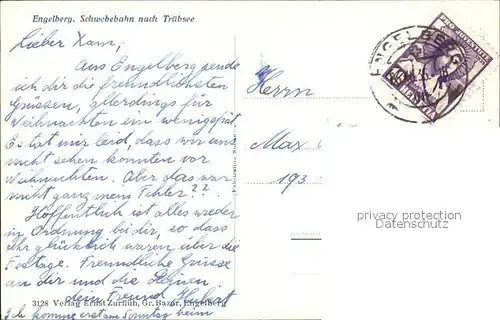 Engelberg. Schwebebahn nach Trübsee
Lieber Xam,
Aus Engelberg sende
ich dir die freundlichsten
Grüssen, allerdings für
Weihnachten ein wenig spät.
Es tat mir leid, dass wir uns
nicht sehen konnten vor
Weihnachten. Aber das war
nicht ganz mein Fehler??
Hoffentlich ist alles wieder
in Ordnung bei dir, so dass
Ihr glücklich waren über die
Festage. Freundliche Grüsse
an dir und die Deinen
dein Freund
3128 Verlag Ernst Zurfluh, Gr. Bazar, Engelberg
Ich komme erst am Sonntag beim
ENGELBERG
PRO JUVENTUTE
HELVETIA
Herrn
Max
193
privacy protection
Datenschutz